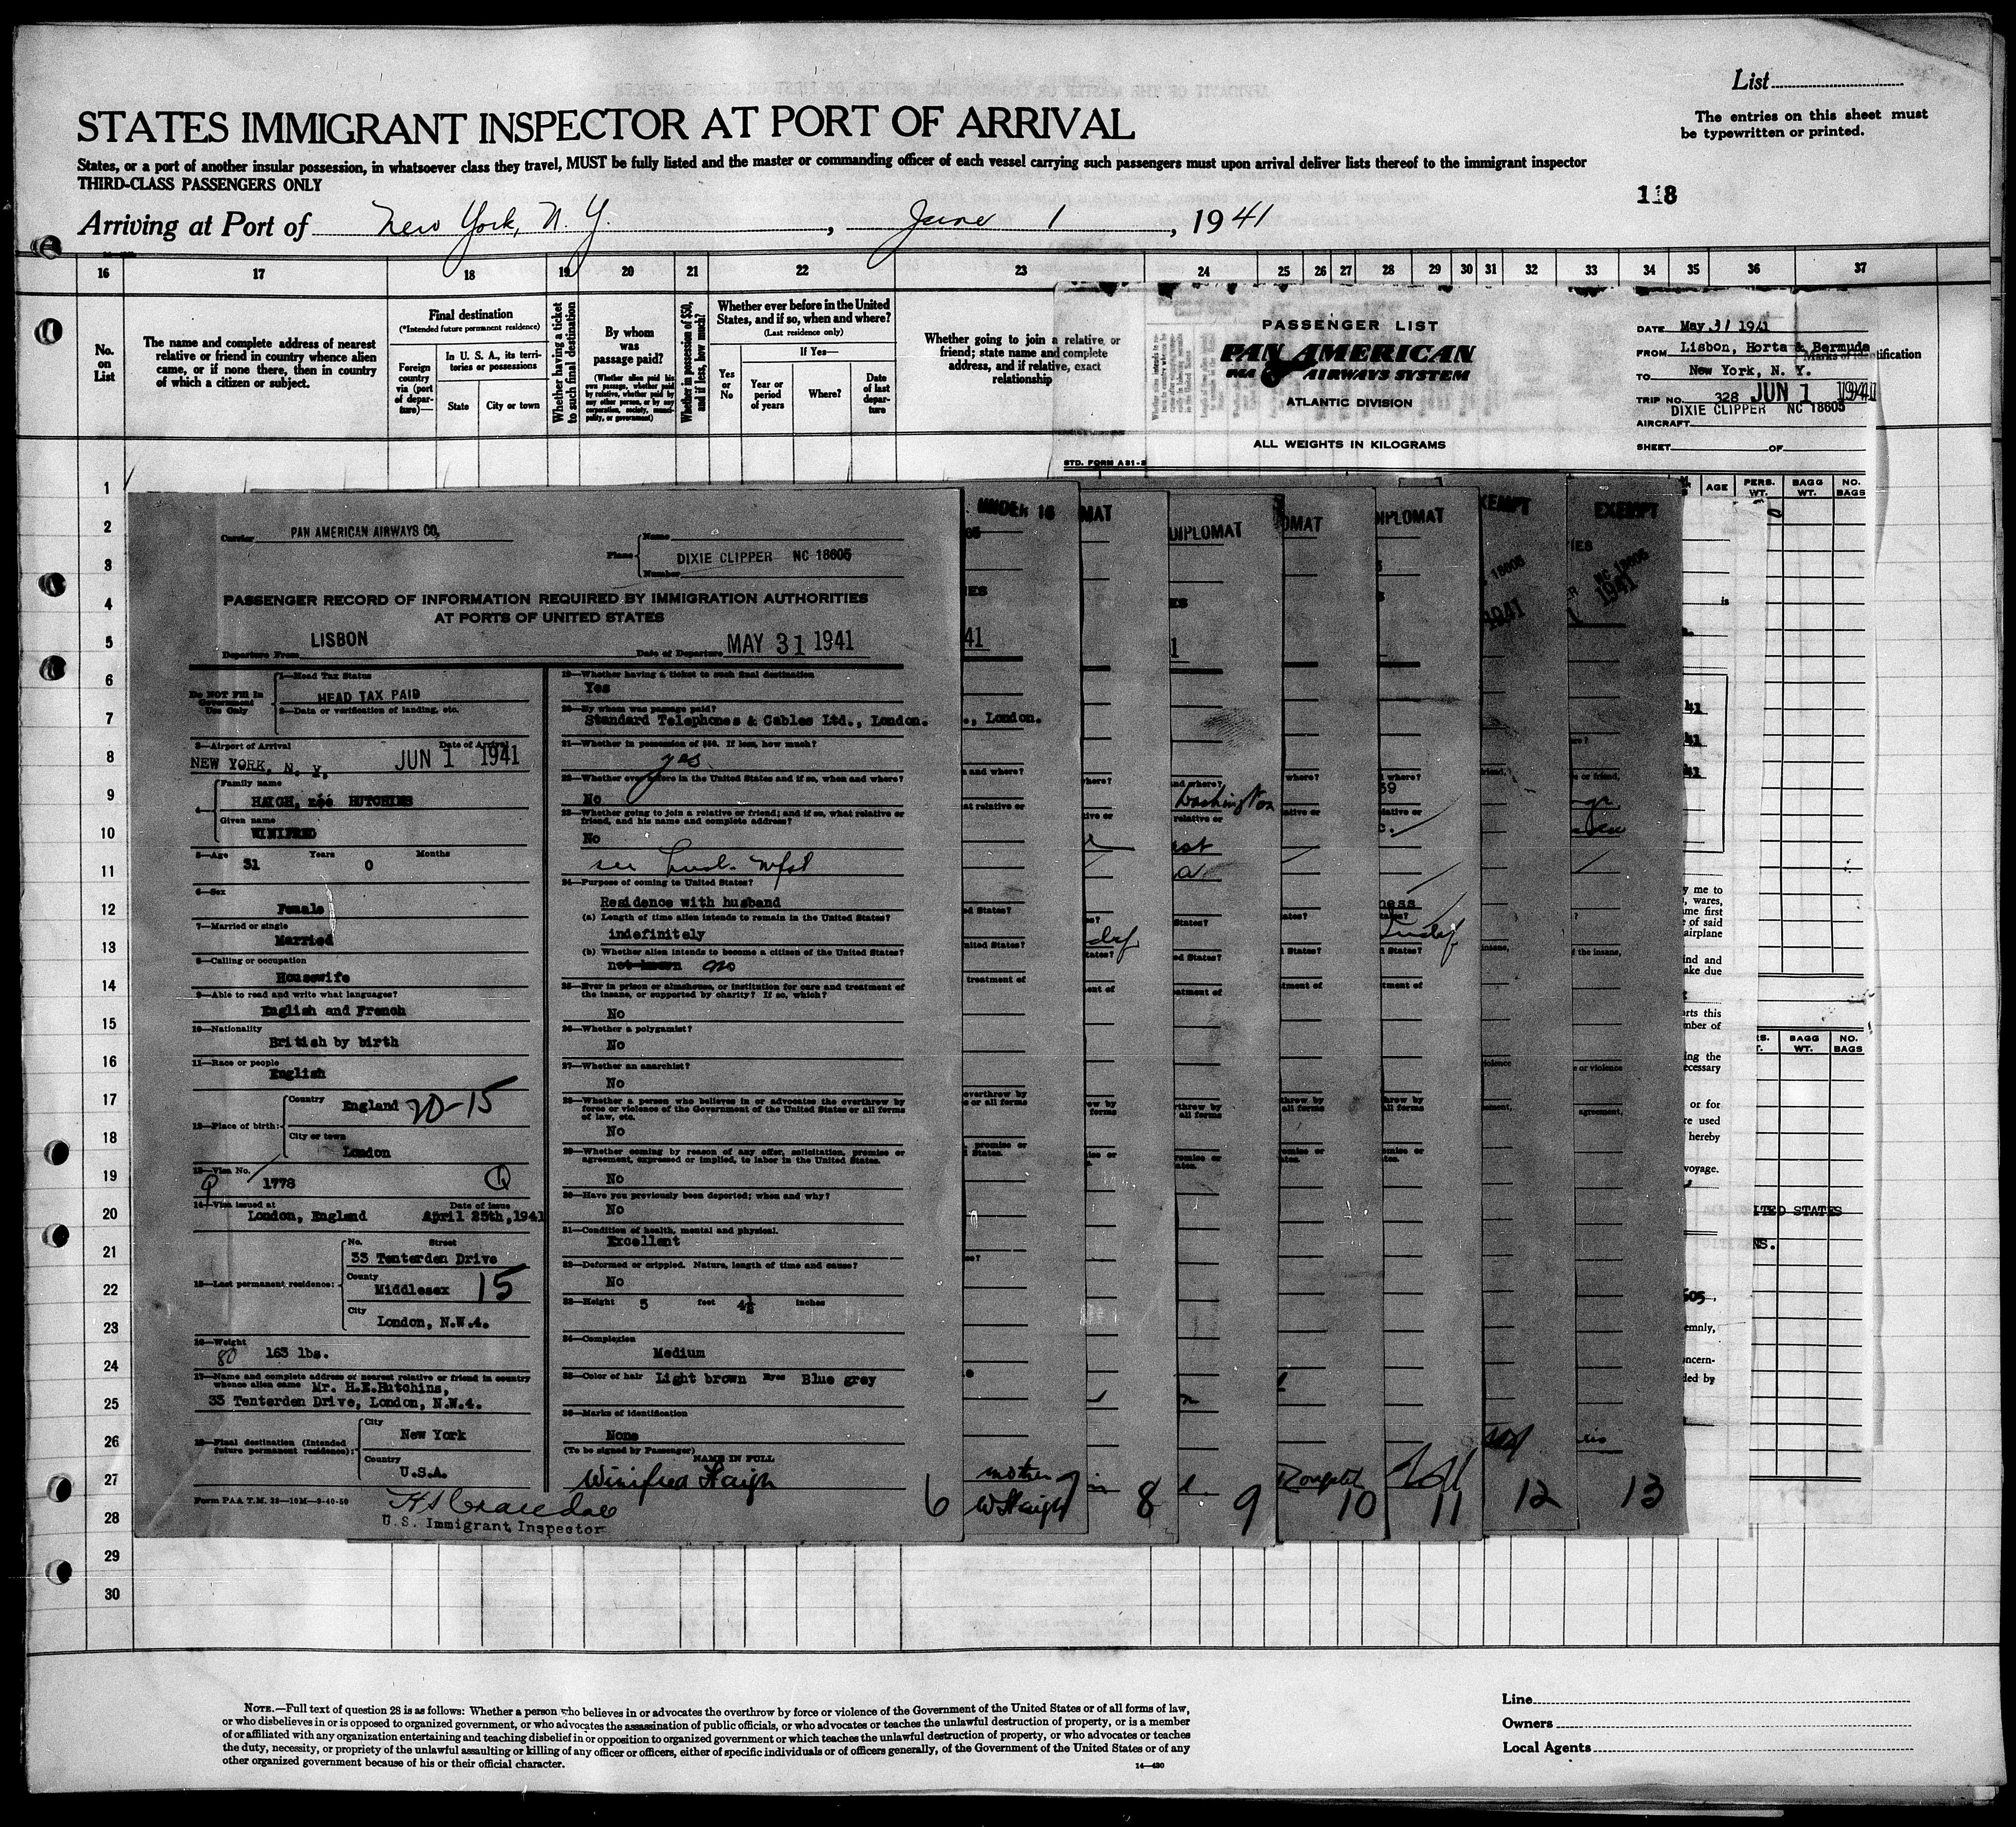 List
The entries on this sheet must
be typewritten or printed.
STATES IMMIGRANT INSPECTOR AT PORT OF ARRIVAL
States, or a port of another insular possession, in whatsoever class they travel, MUST be fully listed and the master or commanding officer of each vessel carrying such passengers must upon arrival deliver lists thereof to the immigrant inspector
THIRD-CLASS PASSENGERS ONLY
118
Arriving at Port of New York, N. Y., June 1, 1941
16 17 18 19 20 21 22 23 24 25 26 27 28 29 30 31 32 33 34 35 36 37
No.
on
List
The name and complete address of nearest
relative or friend in country whence alien
came, or if none there, then in country
of which a citizen or subject.
Final destination
(*Intended future permanent residence)
Foreign
country
via (port
of depar-
ture)—
In U. S. A., its terri-
tories or possessions
State
City or town
Whether having a ticket
to such final destination
By whom
was
passage paid?
(Whether alien paid his
own passage, whether paid
by relative, whether paid by
any other person, or by any
corporation, society, munici-
pality, or government)
Whether in possession of $50,
and if less, how much?
Whether ever before in the United
States, and if so, when and where?
(Last residence only)
If Yes—
Yes
or
No
Year or
period
of years
Where?
Date
of last
depar-
ture
Whether going to join a relative or
friend; state name and complete
address, and if relative, exact
relationship
PASSENGER LIST
PAN AMERICAN
AIRWAYS SYSTEM
ATLANTIC DIVISION
ALL WEIGHTS IN KILOGRAMS
STD. FORM A 31-B
DATE May 31 1941
FROM Lisbon, Horta & Bermuda
Marks of identification
TO New York, N. Y.
TRIP NO. 328 JUN 1 1941
DIXIE CLIPPER NC 18605
AIRCRAFT
SHEET OF
AGE PERS. WT. BAGG WT. NO. BAGS
1
2
3
4
5
6
7
8
9
10
11
12
13
14
15
16
17
18
19
20
21
22
23
24
25
26
27
28
29
30
Carrier PAN AMERICAN AIRWAYS CO,
Plane Name
DIXIE CLIPPER NC 18605
Number
PASSENGER RECORD OF INFORMATION REQUIRED BY IMMIGRATION AUTHORITIES
AT PORTS OF UNITED STATES
Departure From LISBON
Date of Departure MAY 31 1941
Do NOT Fill In
Government
Use Only
1—Head Tax Status
HEAD TAX PAID
2—Data or verification of landing, etc.
3—Airport of Arrival
Date of Arrival
NEW YORK, N. Y. JUN 1 1941
4 Family name
HAIGH, née HUTCHINS
Given name
WINIFRED
5—Age 31 Years 0 Months
6—Sex
Female
7—Married or single
Married
8—Calling or occupation
Housewife
9—Able to read and write what languages?
English and French
10—Nationality
British by birth
11—Race or people
English
12—Place of birth:
Country
England 20-15
City or town
London
13—Visa No.
1778 Q
14—Visa issued at
Date of issue
London, England April 25th, 1941
15—Last permanent residence:
No. Street
33 Tenterden Drive
County
Middlesex 15
City
London, N.W.4.
16—Weight
80 163 lbs.
17—Name and complete address of nearest relative or friend in country
whence alien came Mr. H.E.Hutchins,
33 Tenterden Drive, London, N.W.4.
18—Final destination (Intended
future permanent residence):
City
New York
Country
U.S.A.
Form PAA T.M. 28—10M—9-40-50
U.S. Immigrant Inspector
19—Whether having a ticket to such final destination
Yes
20—By whom was passage paid?
Standard Telephones & Cables Ltd., London.
21—Whether in possession of $50. If less, how much?
yes
22—Whether ever before in the United States and if so, when and where?
No
23—Whether going to join a relative or friend; and if so, what relative or
friend, and his name and complete address?
No
see husb.
24—Purpose of coming to United States?
Residence with husband
(a) Length of time alien intends to remain in the United States?
indefinitely
(b) Whether alien intends to become a citizen of the United States?
not known no
25—Ever in prison or almshouse, or institution for care and treatment of
the insane, or supported by charity? If so, which?
No
26—Whether a polygamist?
No
27—Whether an anarchist?
No
28—Whether a person who believes in or advocates the overthrow by
force or violence of the Government of the United States or all forms
of law, etc.
No
29—Whether coming by reason of any offer, solicitation, promise or
agreement, expressed or implied, to labor in the United States.
No
30—Have you previously been deported; when and why?
No
31—Condition of health, mental and physical.
Excellent
32—Deformed or crippled. Nature, length of time and cause?
No
33—Height 5 feet 4½ inches
34—Complexion
Medium
35—Color of hair Light brown Eyes Blue grey
36—Marks of identification
None
(To be signed by Passenger)
NAME IN FULL
Winifred Haigh
6
UNDER 16
., London.
mother
W Haigh 7
8
DIPLOMAT
Washington
9
10
DIPLOMAT
11
12
EXEMPT
13
UNITED STATES
NOTE.—Full text of question 28 is as follows: Whether a person who believes in or advocates the overthrow by force or violence of the Government of the United States or of all forms of law,
or who disbelieves in or is opposed to organized government, or who advocates the assassination of public officials, or who advocates or teaches the unlawful destruction of property, or is a member
of or affiliated with any organization entertaining and teaching disbelief in or opposition to organized government or which teaches the unlawful destruction of property, or who advocates or teaches
the duty, necessity, or propriety of the unlawful assaulting or killing of any officer or officers, either of specific individuals or of officers generally, of the Government of the United States or of any
other organized government because of his or their official character.
14—430
Line
Owners
Local Agents